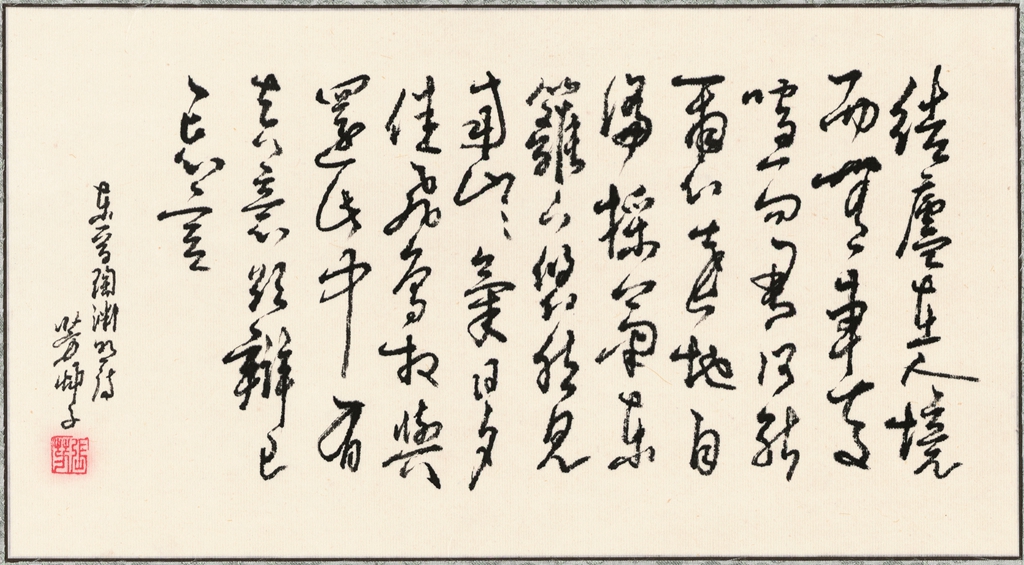 結廬在人境
而無車馬
喧問君何能
爾心遠地自
偏採菊東
籬下悠然見
南山〻氣日夕
佳飛鳥相與
還此中有
真意欲辯已
忘言
東晉陶淵明詩